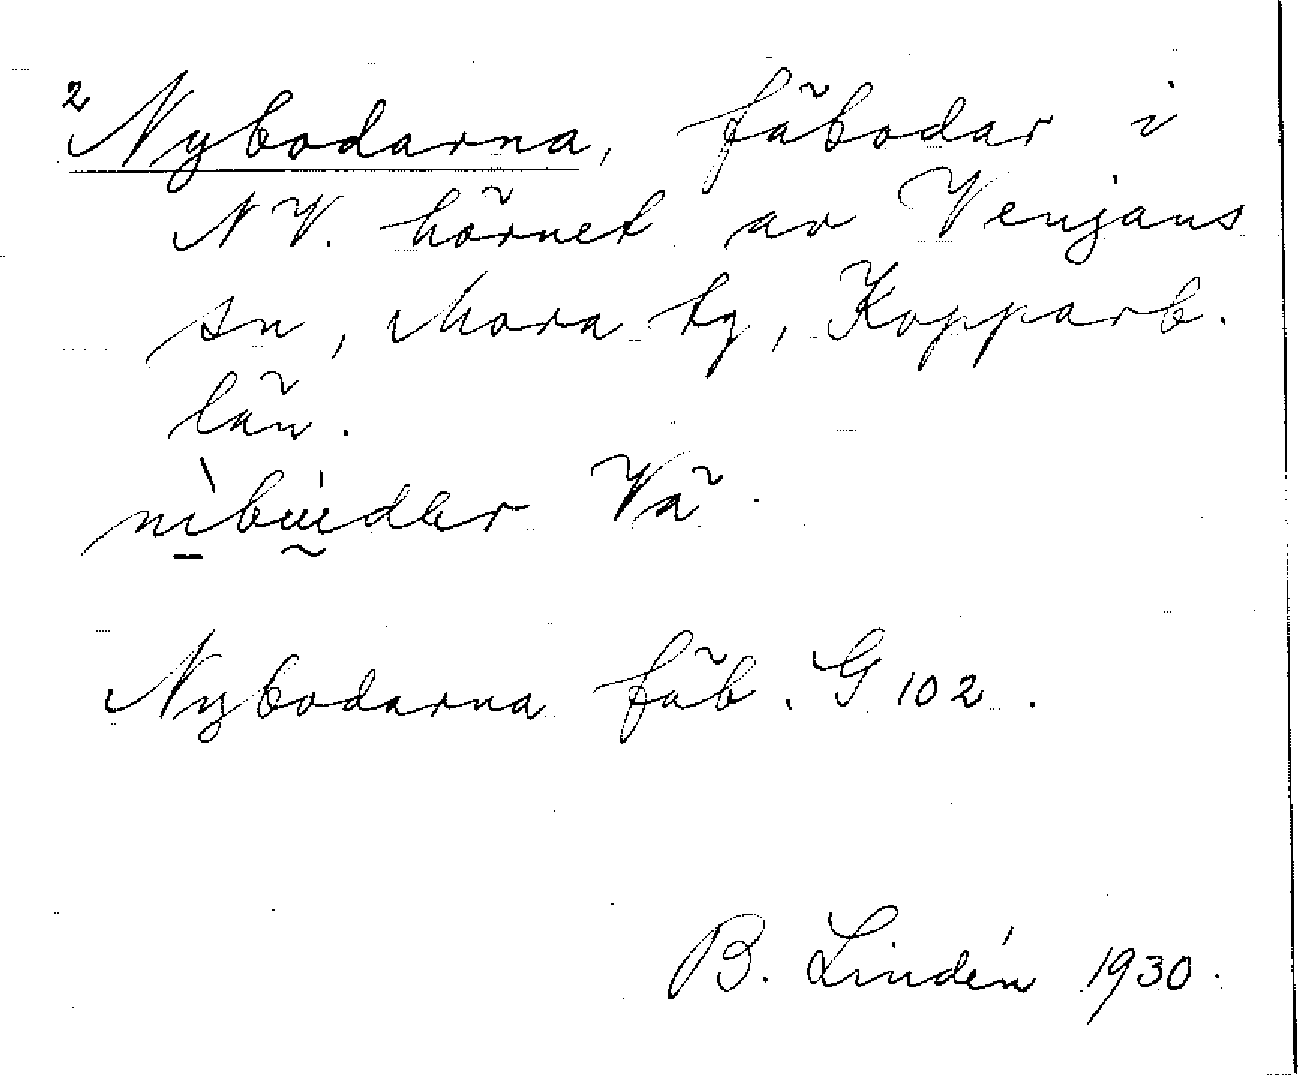 ² Nybodarna, fäbodar i
NV. hörnet av Venjans
sn, Mora tg, Kopparb.
län.
Vä.
Nybodarna fäb. G 102.
B. Lindén 1930.